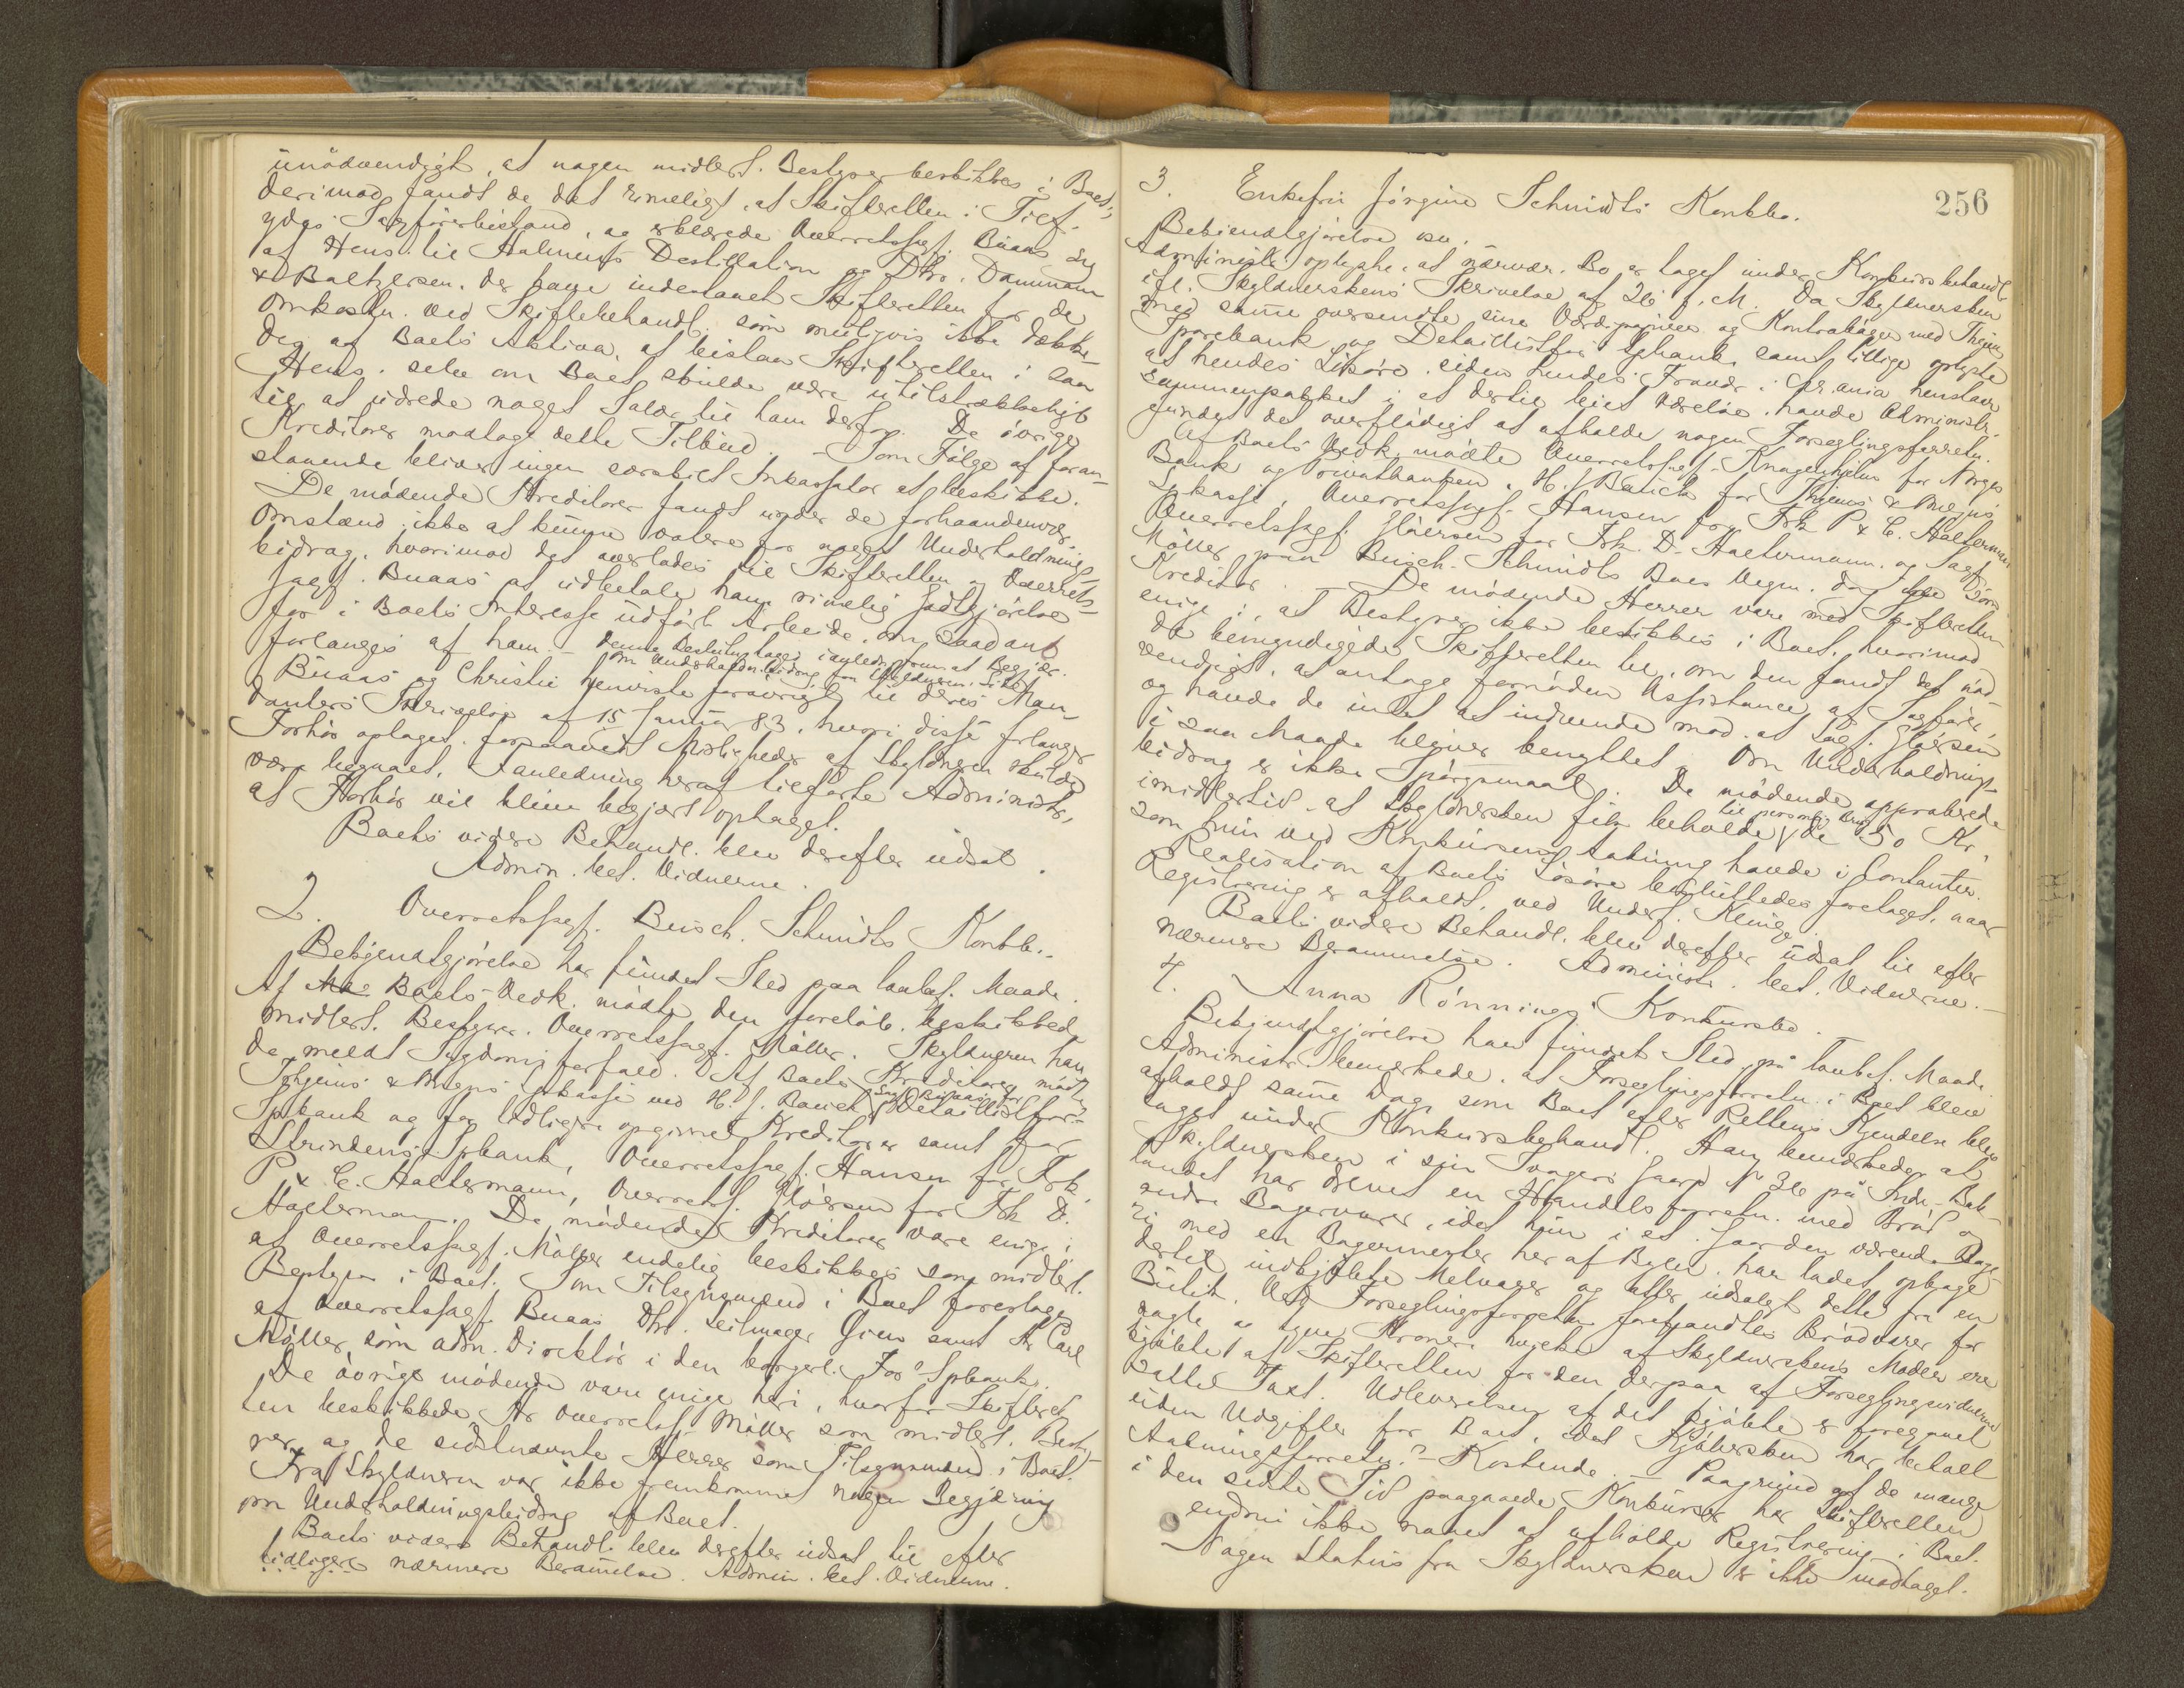 unödvendigt, at nogen midlert. Bestyrer beskikkes i Boet;
derimod fandt de det rimeligt, at Skifteretten i Tilf.
ydes Sagförerbistand, og erklærede Overretssagf. Buaas sig
af Hens. til Aalmens Destillation og Dhr. Dammann
& Baltzersen, der have indestaaet Skifteretten for de
Omkostn. ved Skiftebehandl. som muligvis ikke dække-
des af Boets Aktiva, at bistaa Skifteretten i saa
Hens. selv om Boet skulde være utilstrækkeligt
til at udrede noget Salær til ham derfor. De övrige
Kreditorer modtoge dette Tilbud. – Som Fölge af foran-
staaende bliver ingen særskilt Inkassator at beskikke.
De mödende Kreditorer fandt under de forhaandenvær.
Omstænd. ikke at kunne votere for noget Underholdnings-
bidrag, hvorimod det overlades til Skifteretten og Overrets-
sagf. Buaas at udbetale ham rimelig Godtgjörelse
for i Boets Interesse udfört Arbeide, om saadant
forlanges af ham. – Denne Beslutning toges i anledn. af Begjær.
om Underholdn.bidrag fra Skyldneren.
Buaas og Christie henviste forövrigt til deres Man-
danters Skrivelse af 15 Januar 83, hvori disse forlanger
Forhör optaget, forsaavidt Misligheder af Skyldneren skulde
være begaaet. I anledning heraf tilförte Administr.
at Forhör vil blive begjært optaget.
Boets videre Behandl. blev derefter udsat.
Admin. bet. Vidnerne.
2. Overretssagf. Busch. Schmidts Konkb.
Bekjendtgjörelse har fundet Sted paa lovbef. Maade.
Af Boets Vedk. mödte den forelöb. beskikkede
midlert. Bestyrer, Overretssagf. Möller. Skyldneren hav-
de meldt Sygdomsforfald. Af Boets Kreditorer mödte
Thjems & Megns Spkasse ved H. J. Bauck, Sagf. Buaas for Detaillistfor-
Spbank og for tidligere opgivne Kreditorer samt for
Strindens Spbank, Overretssagf. Hansen for Frk.
P & C. Haltermann, Overretssf. Gløersen for Frk D.
Haltermann. De mödende Kreditorer vare enige i
at Overretssagf. Möller endelig beskikkes som midlert.
Bestyrer i Boet. Som Tilsynsmænd i Boet foreslages
af Overretssagf. Buaas Dhr. Seilmager Gien samt Hr Carl
Möller, som adm. Direktör i den borgerl. For.s Spbank.
De övrige mödende vare enige heri, hvorfor Skifteret-
ten beskikkede Hr Overretssf. Möller som midlert. Besty-
rer og de sidstnævnte Herrer som Tilsynsmænd i Boet.
Fra Skyldneren var ikke fremkommet nogen Begjæring
om Underholdningsbidrag af Boet.
Boets videre Behandl. blev derefter udsat til efter
tidligere nærmere Berammelse. Admin. bet. Vidnerne.
256
3. Enkefru Jörgine Schmidts Konkbo.
Bekjendtgjörelse osv.
Administr. oplyste, at nærvær. Bo er taget under Konkursbehandl.
ifl. Skyldnerskens Skrivelse af 26 f. M. Da Skyldnersken
med samme oversendte sine Værdipapirer og Kontrabøger med Thjems
Sparebank og Detaillistfor. Spbank, samt tillige oplyste
at hendes Lösöre siden hendes Fravær i Chr.ania henstaar
sammenpakket i et dertil leiet Værelse, havde Administr.
fundet det overflödigt at afholde nogen Forseglingsforretn.
Af Boets Vedk. mödte Overretssagf. Knagenhjelm for Norges
Bank og Privatbanken, H. J. Bauck for Thjems & Megns
Spkasse, Overretssagf. Hansen for Frk P & C. Halterman
Overretssagf. Gløersen for Frk. D. Haltermann, og Sagf.
Möller paa Busch-Schmidts Boes Vegne, dog ikke som
Kreditor. – De mödende Herrer vare med Skifteretten
enige i, at Bestyrer ikke beskikkes i Boet, hvorimod
de bemyndigede Skifteretten til, om den fandt det nöd-
vendigt, at antage fornöden Assistance af Sagförer,
og havde de intet at indvende mod, at Sagf. Gløersen
i saa Maade bliver benyttet. Om Underholdnings-
bidrag er ikke Spörgsmaal. De mödende approberede
imidlertid, at Skyldnersken fik beholde til personlig Brug de 50 Kr.
som hun ved Konkursens Aabning havde i Contanter.
Realisation af Boets Lösöre besluttedes foretaget, naar
Registrering er afholdt, ved Underf. Klingе.
Boets videre Behandl. blev derefter udsat til efter
nærmere Berammelse. Administr. bet. Vidnerne. –
4. Anna Rönnings Konkursbo.
Bekjendtgjörelse har fundet Sted på lovbef. Maade.
Administr. bemærkede, at Forseglingsforretn. i Boet blev
afholdt samme Dag, som Boet efter Rettens Kjendelse blev
taget under Konkursbehandl. Han bemærkede, at
Skyldnersken i sin Svogers Gaard No 36 på Indr. Bak-
landet har drevet en Handelsforretn. med Bröd og
andre Bagervarer, idet hun i et i Gaarden værende Bage-
ri med en Bagermester her af Byen, har ladet opbage
dertil indkjöbte Melvarer og atter udsolgt dette fra en
Butik. Ved Forseglingsforretn. forefandtes Brödvarer for
nogle og tyve Kroner, hvilke af Skyldnerskens Moder ere
kjöbte af Skifteretten for den derpaa af Forseglingsvidnerne
satte Taxt. Udleverelsen af det kjöbte er foregaaet
uden Udgifter for Boet, idet Kjöbersken har betalt
Aabningsforretn.s Kostende. – Paagrund af de mange
i den sidste Tid paagaaede Konkurser har Skifteretten
endnu ikke naaet at afholde Registrering i Boet.
Nogen Status fra Skyldnersken er ikke modtaget.